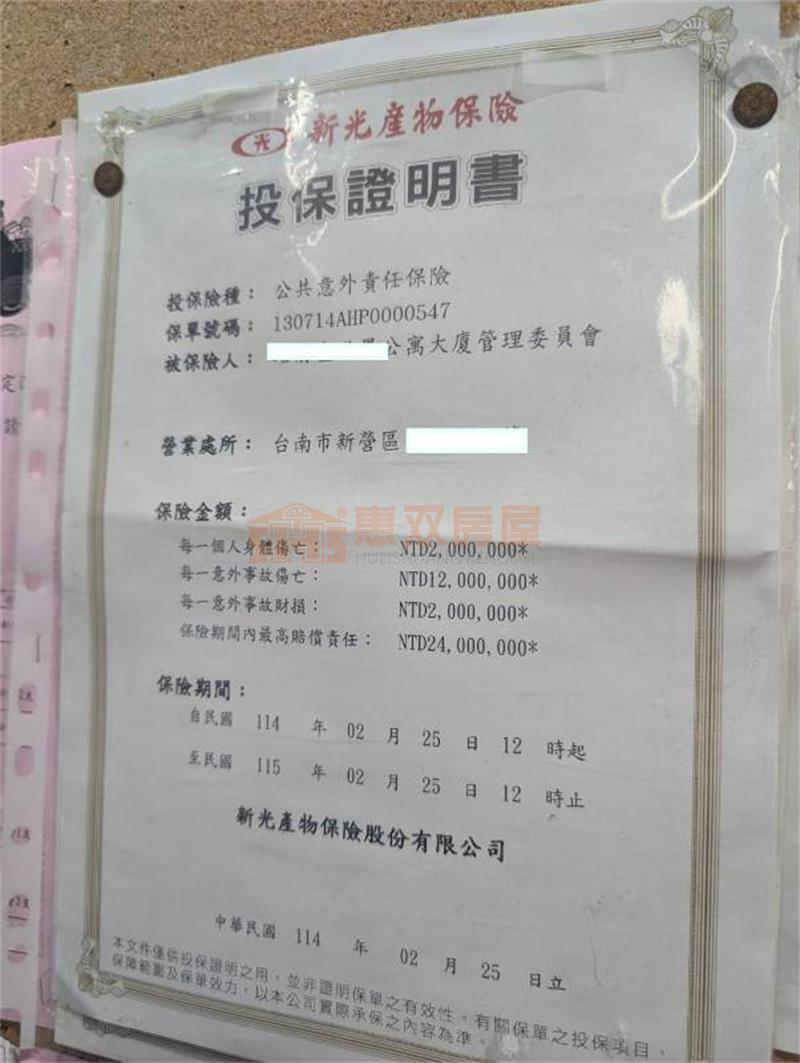 光 新光產物保險
投保證明書
投保險種：公共意外責任保險
保單號碼：130714AHP0000547
被保險人：公寓大廈管理委員會
營業處所：台南市新營區
保險金額：
每一個人身體傷亡：NTD2,000,000*
每一意外事故傷亡：NTD12,000,000*
每一意外事故財損：NTD2,000,000*
保險期間內最高賠償責任：NTD24,000,000*
惠双房屋
HUEISHUANG REHOUSE
保險期間：
自民國 114 年 02 月 25 日 12 時起
至民國 115 年 02 月 25 日 12 時止
新光產物保險股份有限公司
中華民國 114 年 02 月 25 日立
本文件僅供投保證明之用，並非證明保單之有效性。有關保單之投保項目、
保障範圍及保單效力，以本公司實際承保之內容為準。
定
請